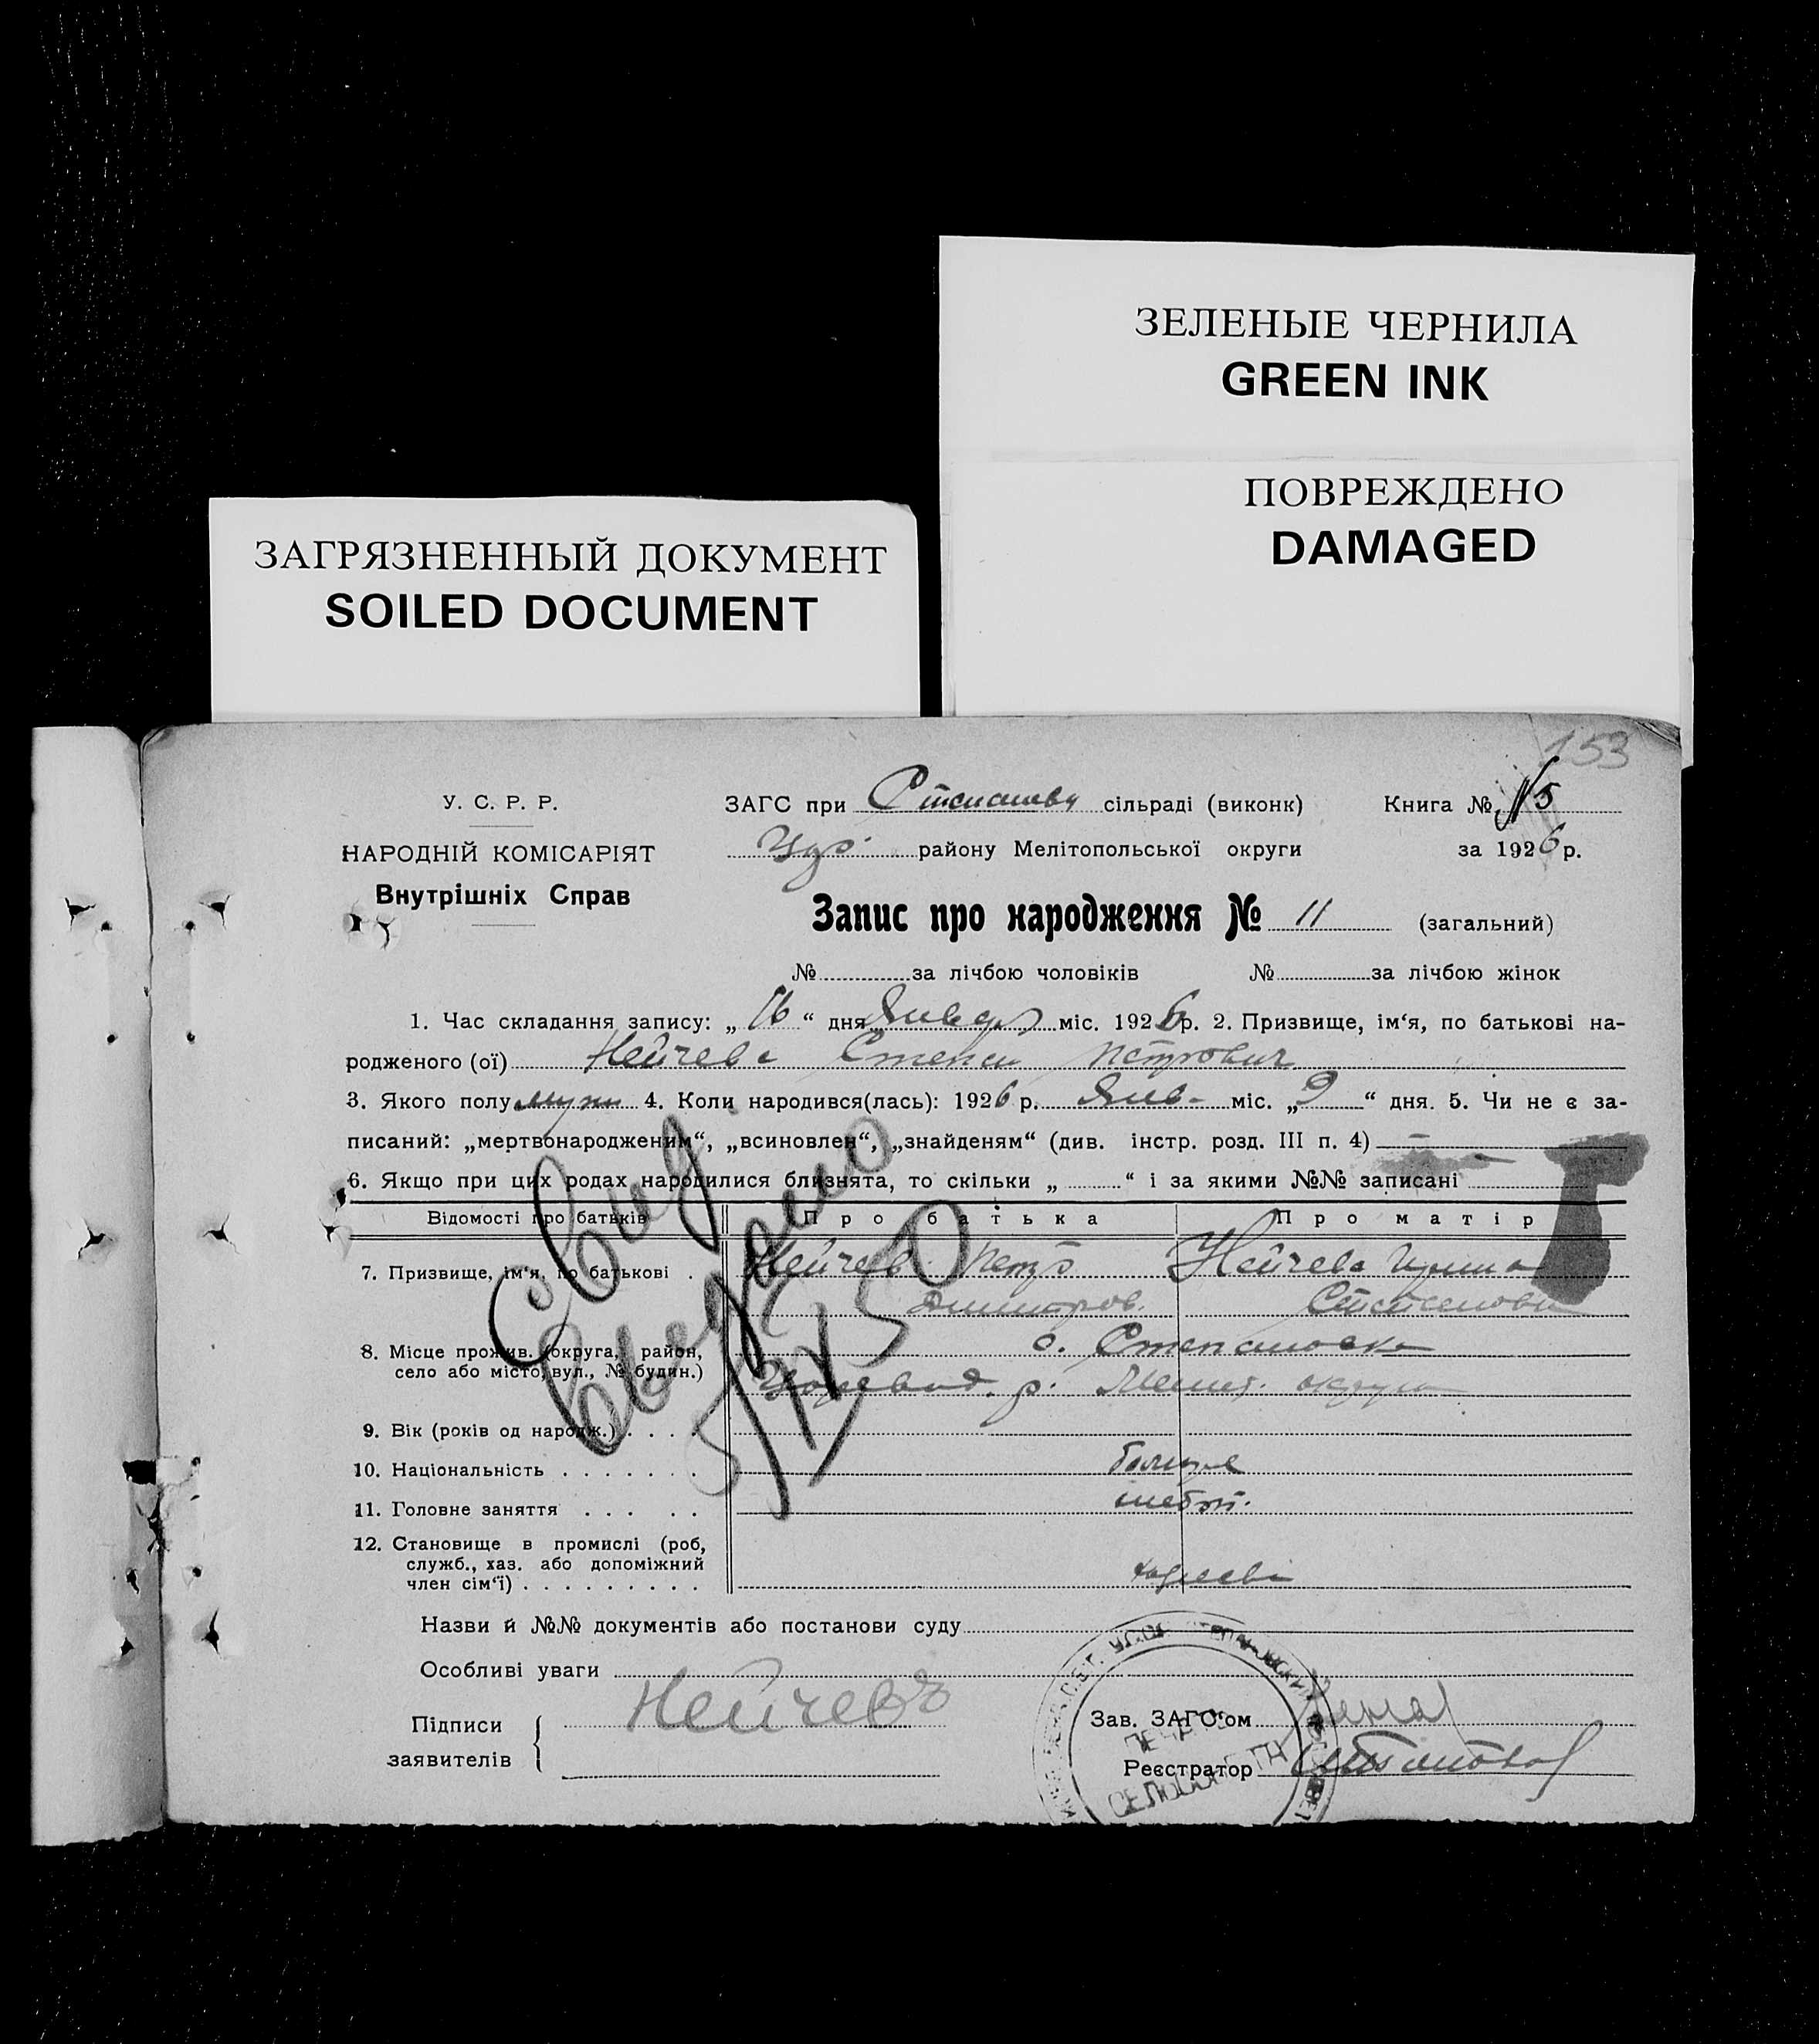 ЗЕЛЕНЫЕ ЧЕРНИЛА
GREEN INK
ПОВРЕЖДЕНО
DAMAGED
ЗАГРЯЗНЕННЫЙ ДОКУМЕНТ
SOILED DOCUMENT
153
У. С. Р. Р.
НАРОДНІЙ КОМІСАРІЯТ
Внутрішніх Справ
ЗАГС при сільраді (виконк) Книга № 5
району Мелітопольської округи за 1926 р.
Запис про народження № 11 (загальний)
№ за лічбою чоловіків № за лічбою жінок
1. Час складання запису: „ 16 “ дня міс. 1926 р. 2. Призвище, ім‘я, по батькові на-
родженого (ої) Нейчев Степан Петрович
3. Якого полу 4. Коли народився(лась): 1926 р. Янв. міс. „ 9 “ дня. 5. Чи не є за-
писаний: „мертвонародженим“, „всиновлен“, „знайденям“ (див. інстр. розд. III п. 4)
6. Якщо при цих родах народилися близнята, то скільки „ “ і за якими №№ записані
Відомості про батьків Про батька Про матір
7. Призвище, ім‘я, по батькові . Нейчев Петр Нейчева Ирина
Дмитров. Степановна
8. Місце прожив. (округа, район, с. Степановка
село або місто, вул., № будин.) р. Мелит. округа
9. Вік (років од народж.) . . . .
10. Національність . . . . . . . болгаре
11. Головне заняття . . . . . хлебоп.
12. Становище в промислі (роб,
служб., хаз. або допоміжний
член сім‘ї) . . . . . . . . .
Свид.
выдано
5/IX 50
Назви й №№ документів або постанови суду
Особливі уваги
Підписи Нейчевъ
заявителів
Зав. ЗАГС‘ом
Реєстратор